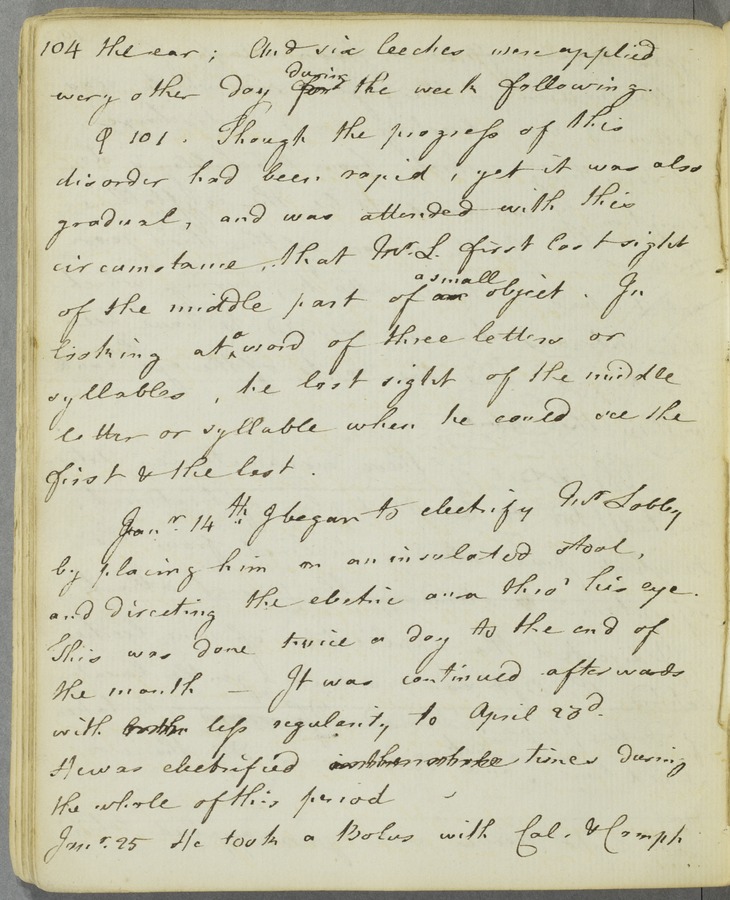 104 the ear ; And six leeches were applied
every other day during the week following.
§ 101 . Though the progress of this
disorder had been rapid , yet it was also
gradual, and was attended with this
circumstance, that Mr. L. first lost sight
of the middle part of a small object . In
looking at a word of three letters or
syllables , he lost sight of the middle
letter or syllable when he could see the
first & the last .
Janr. 14th I began to electrify Mr Lobby
by placing him on an insulated stool,
and directing the electric aura thro' his eye.
This was done twice a day to the end of
the month — It was continued afterwards
with less regularity to April 23d.
He was electrified times during
the whole of this period
Janr. 25 He took a Bolus with Cal. & Camph